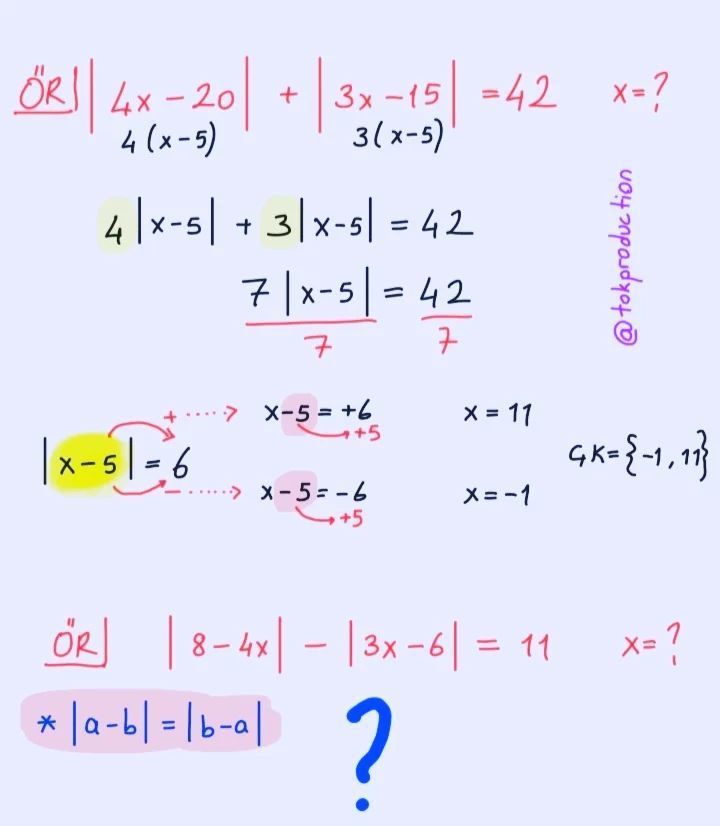 ÖR | |4x-20| + |3x-15| = 42 x=?
4(x-5) 3(x-5)
4|x-5| + 3|x-5| = 42
7|x-5| = 42
7 7
+ x-5 = +6 x = 11
+5
|x-5| = 6 ÇK={-1, 11}
- x-5 = -6 x = -1
+5
@tokproduction
ÖR | |8-4x| - |3x-6| = 11 x=?
* |a-b| = |b-a|
?